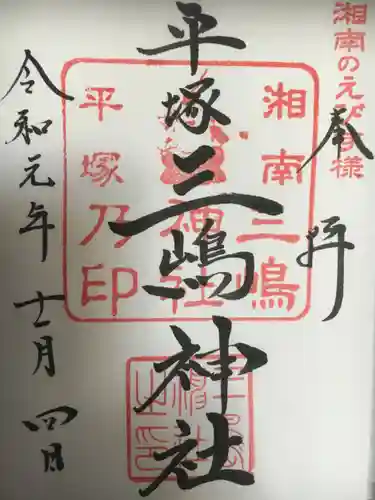 湘南のえびす様
奉拝
平塚三嶋神社
令和元年十一月四日
湘南三嶋
神社
平塚乃印